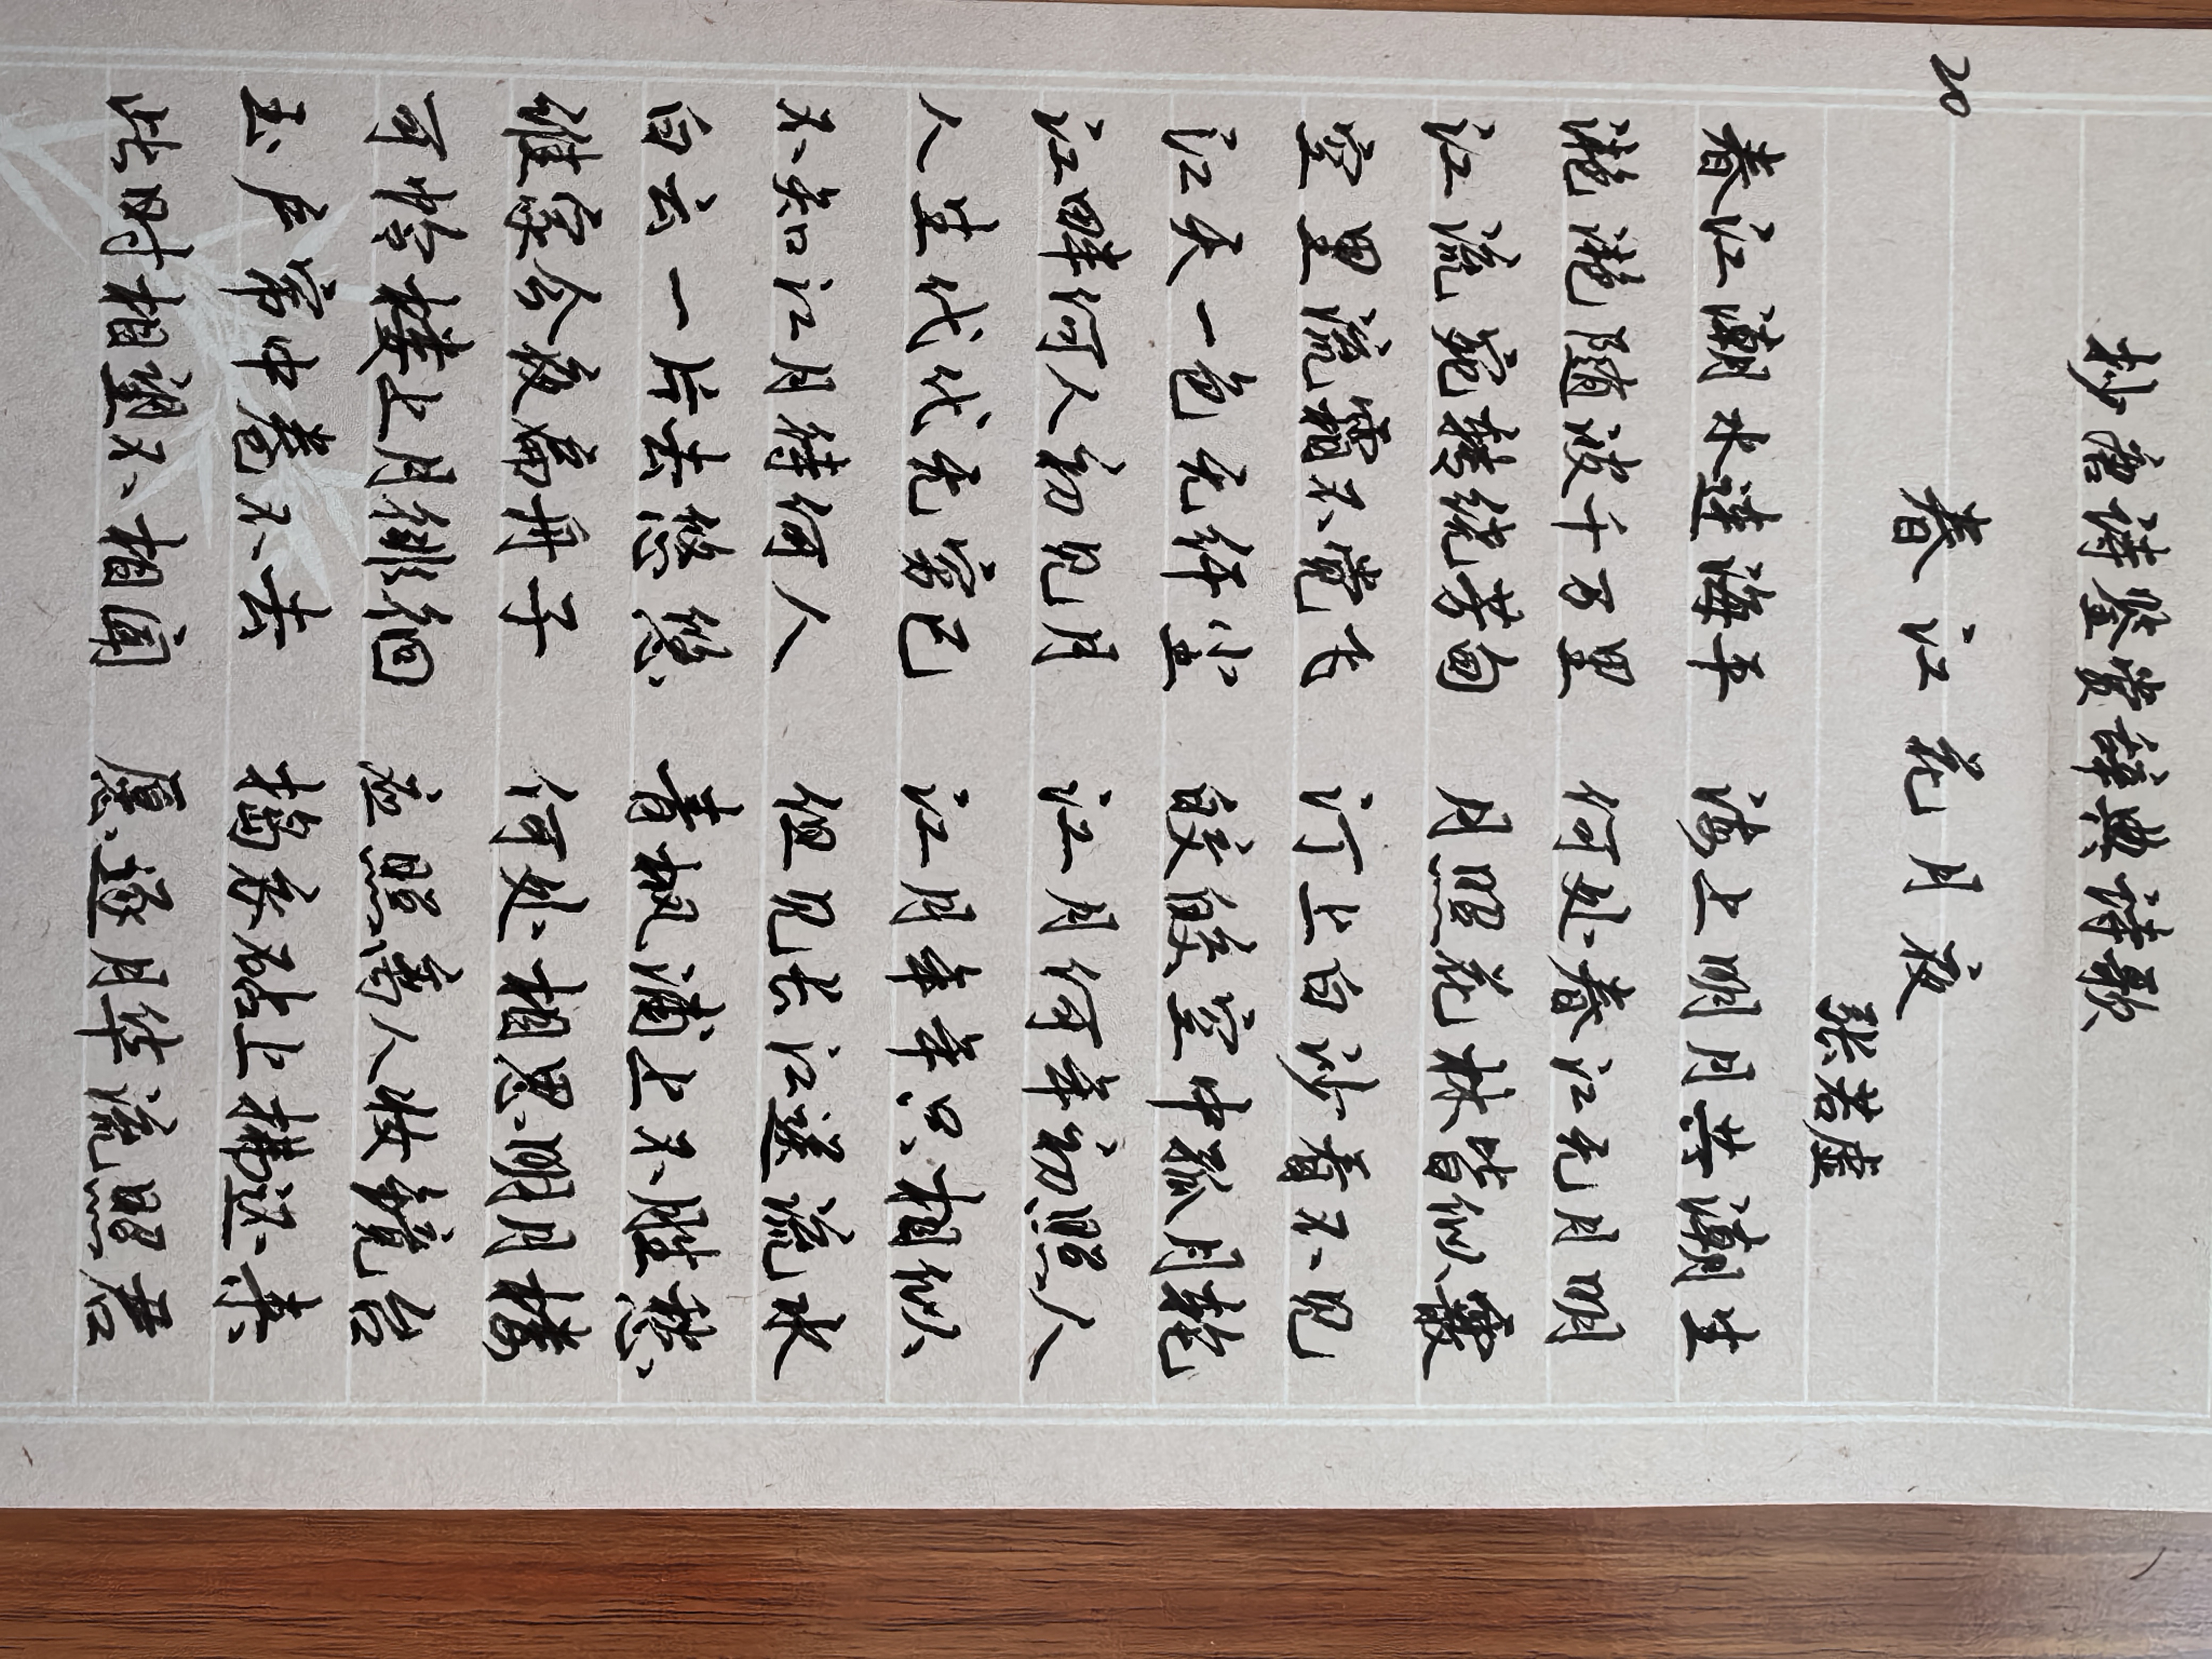 抄唐诗鉴赏辞典诗歌
20 春江花月夜
张若虚
春江潮水连海平 海上明月共潮生
滟滟随波千万里 何处春江无月明
江流宛转绕芳甸 月照花林皆似霰
空里流霜不觉飞 汀上白沙看不见
江天一色无纤尘 皎皎空中孤月轮
江畔何人初见月 江月何年初照人
人生代代无穷已 江月年年只相似
不知江月待何人 但见长江送流水
白云一片去悠悠 青枫浦上不胜愁
谁家今夜扁舟子 何处相思明月楼
可怜楼上月徘徊 应照离人妆镜台
玉户帘中卷不去 捣衣砧上拂还来
此时相望不相闻 愿逐月华流照君